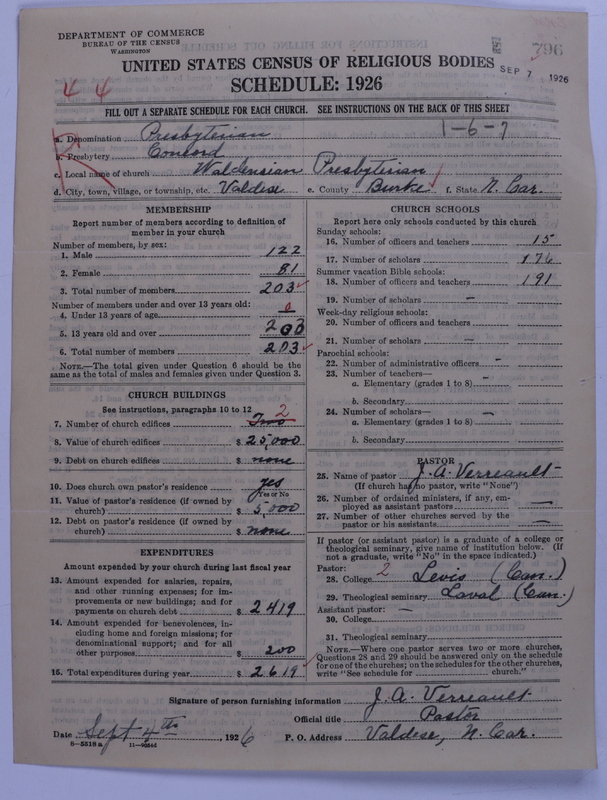 DEPARTMENT OF COMMERCE
BUREAU OF THE CENSUS
WASHINGTON
796
UNITED STATES CENSUS OF RELIGIOUS BODIES
SEP 7 1926
SCHEDULE: 1926
4 4
FILL OUT A SEPARATE SCHEDULE FOR EACH CHURCH. SEE INSTRUCTIONS ON THE BACK OF THIS SHEET
1-6-7
a. Denomination Presbyterian
b. Presbytery Concord
c. Local name of church Waldensian Presbyterian
d. City, town, village, or township, etc. Valdese e. County Burke f. State N. Car.
MEMBERSHIP
Report number of members according to definition of
member in your church
Number of members, by sex:
1. Male 122
2. Female 81
3. Total number of members 203
Number of members under and over 13 years old:
4. Under 13 years of age 0
5. 13 years old and over 203
6. Total number of members 203
NOTE.—The total given under Question 6 should be
same as the total of males and females given under Question 3.
CHURCH BUILDINGS
See instructions, paragraphs 10 to 12
7. Number of church edifices Two 2
8. Value of church edifices $ 25,000
9. Debt on church edifices $ none
10. Does church own pastor's residence? yes
Yes or No
11. Value of pastor's residence (if owned by
church) $ 5,000
12. Debt on pastor's residence (if owned by
church) $ none
EXPENDITURES
Amount expended by your church during last fiscal year
13. Amount expended for salaries, repairs,
and other running expenses; for im-
provements or new buildings; and for
payments on church debt $ 2419
14. Amount expended for benevolences, in-
cluding home and foreign missions; for
denominational support; and for all
other purposes $ 200
15. Total expenditures during year $ 2619
CHURCH SCHOOLS
Report here only schools conducted by this church
Sunday schools:
16. Number of officers and teachers 15
17. Number of scholars 176
Summer vacation Bible schools:
18. Number of officers and teachers 191
19. Number of scholars —
Week-day religious schools:
20. Number of officers and teachers
21. Number of scholars —
Parochial schools:
22. Number of administrative officers —
23. Number of teachers—
a. Elementary (grades 1 to 8) —
b. Secondary
24. Number of scholars— —
a. Elementary (grades 1 to 8)
b. Secondary
PASTOR
25. Name of pastor J. A. Verreault
(If church has no pastor, write "None")
26. Number of ordained ministers, if any, em-
ployed as assistant pastors —
27. Number of other churches served by the
pastor or his assistants —
If pastor (or assistant pastor) is a graduate of a college or
theological seminary, give name of institution below. (If
not a graduate, write "No" in the space indicated.)
Pastor: 2
28. College Levis (Can.)
29. Theological seminary Laval (Can.)
Assistant pastor: —
30. College
31. Theological seminary
NOTE.—Where one pastor serves two or more churches,
Questions 28 and 29 should be answered only on the schedule
for one of the churches; on the schedules for the other churches,
write "See schedule for church."
Signature of person furnishing information J. A. Verreault
Official title Pastor
Date Sept 4th, 1926 P. O. Address Valdese, N. Car.
8—5518a